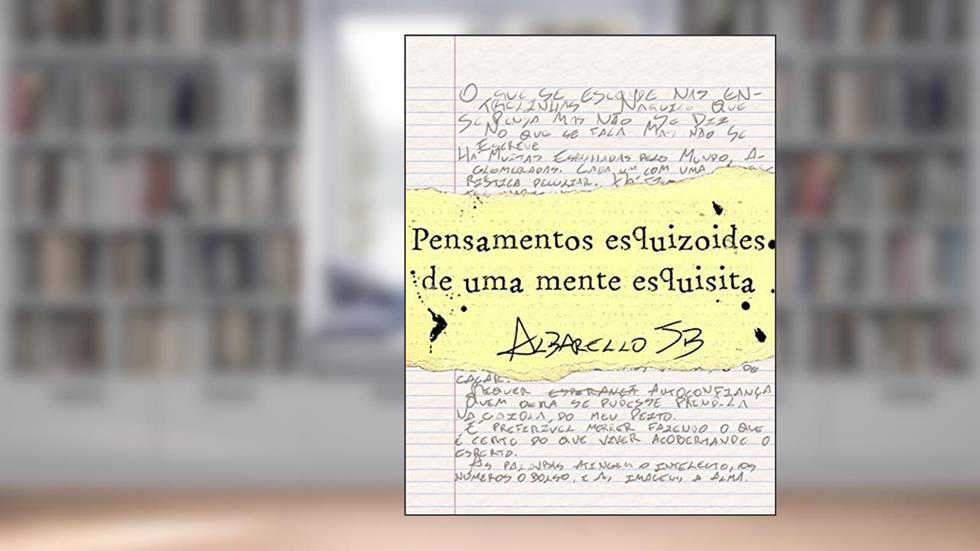 O QUE SE ESCONDE NAS EN-
TRELINHAS NAQUILO QUE
SE MAS NÃO SE DIZ
NO QUE SE FALA MAS NÃO SE
ESCREVE
HÁ MUITAS ESPALHADAS PELO MUNDO, A-
GLOMERADAS. CADA UM COM UMA
RÍSTICA PECULIAR.
Pensamentos esquizoides
de uma mente esquisita
ALBARELLO SB
DE
CAÇAR.
REQUER ESPERANÇA AUTOCONFIANÇA
QUEM DERA SE PUDESSE PRENDÊ-LA
NA GAIOLA DO MEU PEITO.
É PREFERÍVEL MORRER FAZENDO O QUE
É CERTO DO QUE VIVER ACOBERTANDO O
ESPERTO.
AS PALAVRAS ATINGEM O INTELECTO, OS
NÚMEROS O BOLSO, E AS IMAGENS A ALMA.